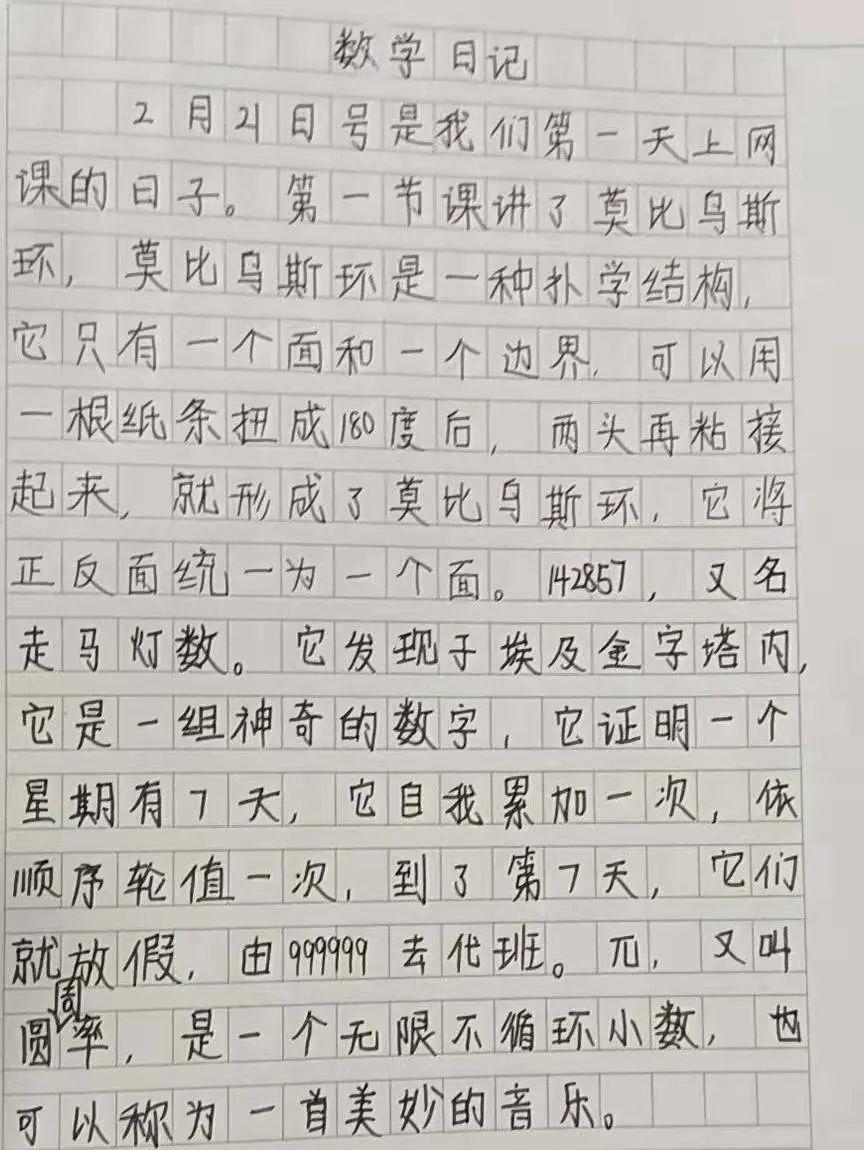 数学日记
2月21日号是我们第一天上网
课的日子。第一节课讲了莫比乌斯
环，莫比乌斯环是一种扑学结构，
它只有一个面和一个边界，可以用
一根纸条扭成180度后，两头再粘接
起来，就形成了莫比乌斯环，它将
正反面统一为一个面。142857，又名
走马灯数。它发现于埃及金字塔内，
它是一组神奇的数字，它证明一个
星期有7天，它自我累加一次，依
顺序轮值一次，到了第7天，它们
就放假，由999999去代班。兀，又叫
圆周率，是一个无限不循环小数，也
可以称为一首美妙的音乐。